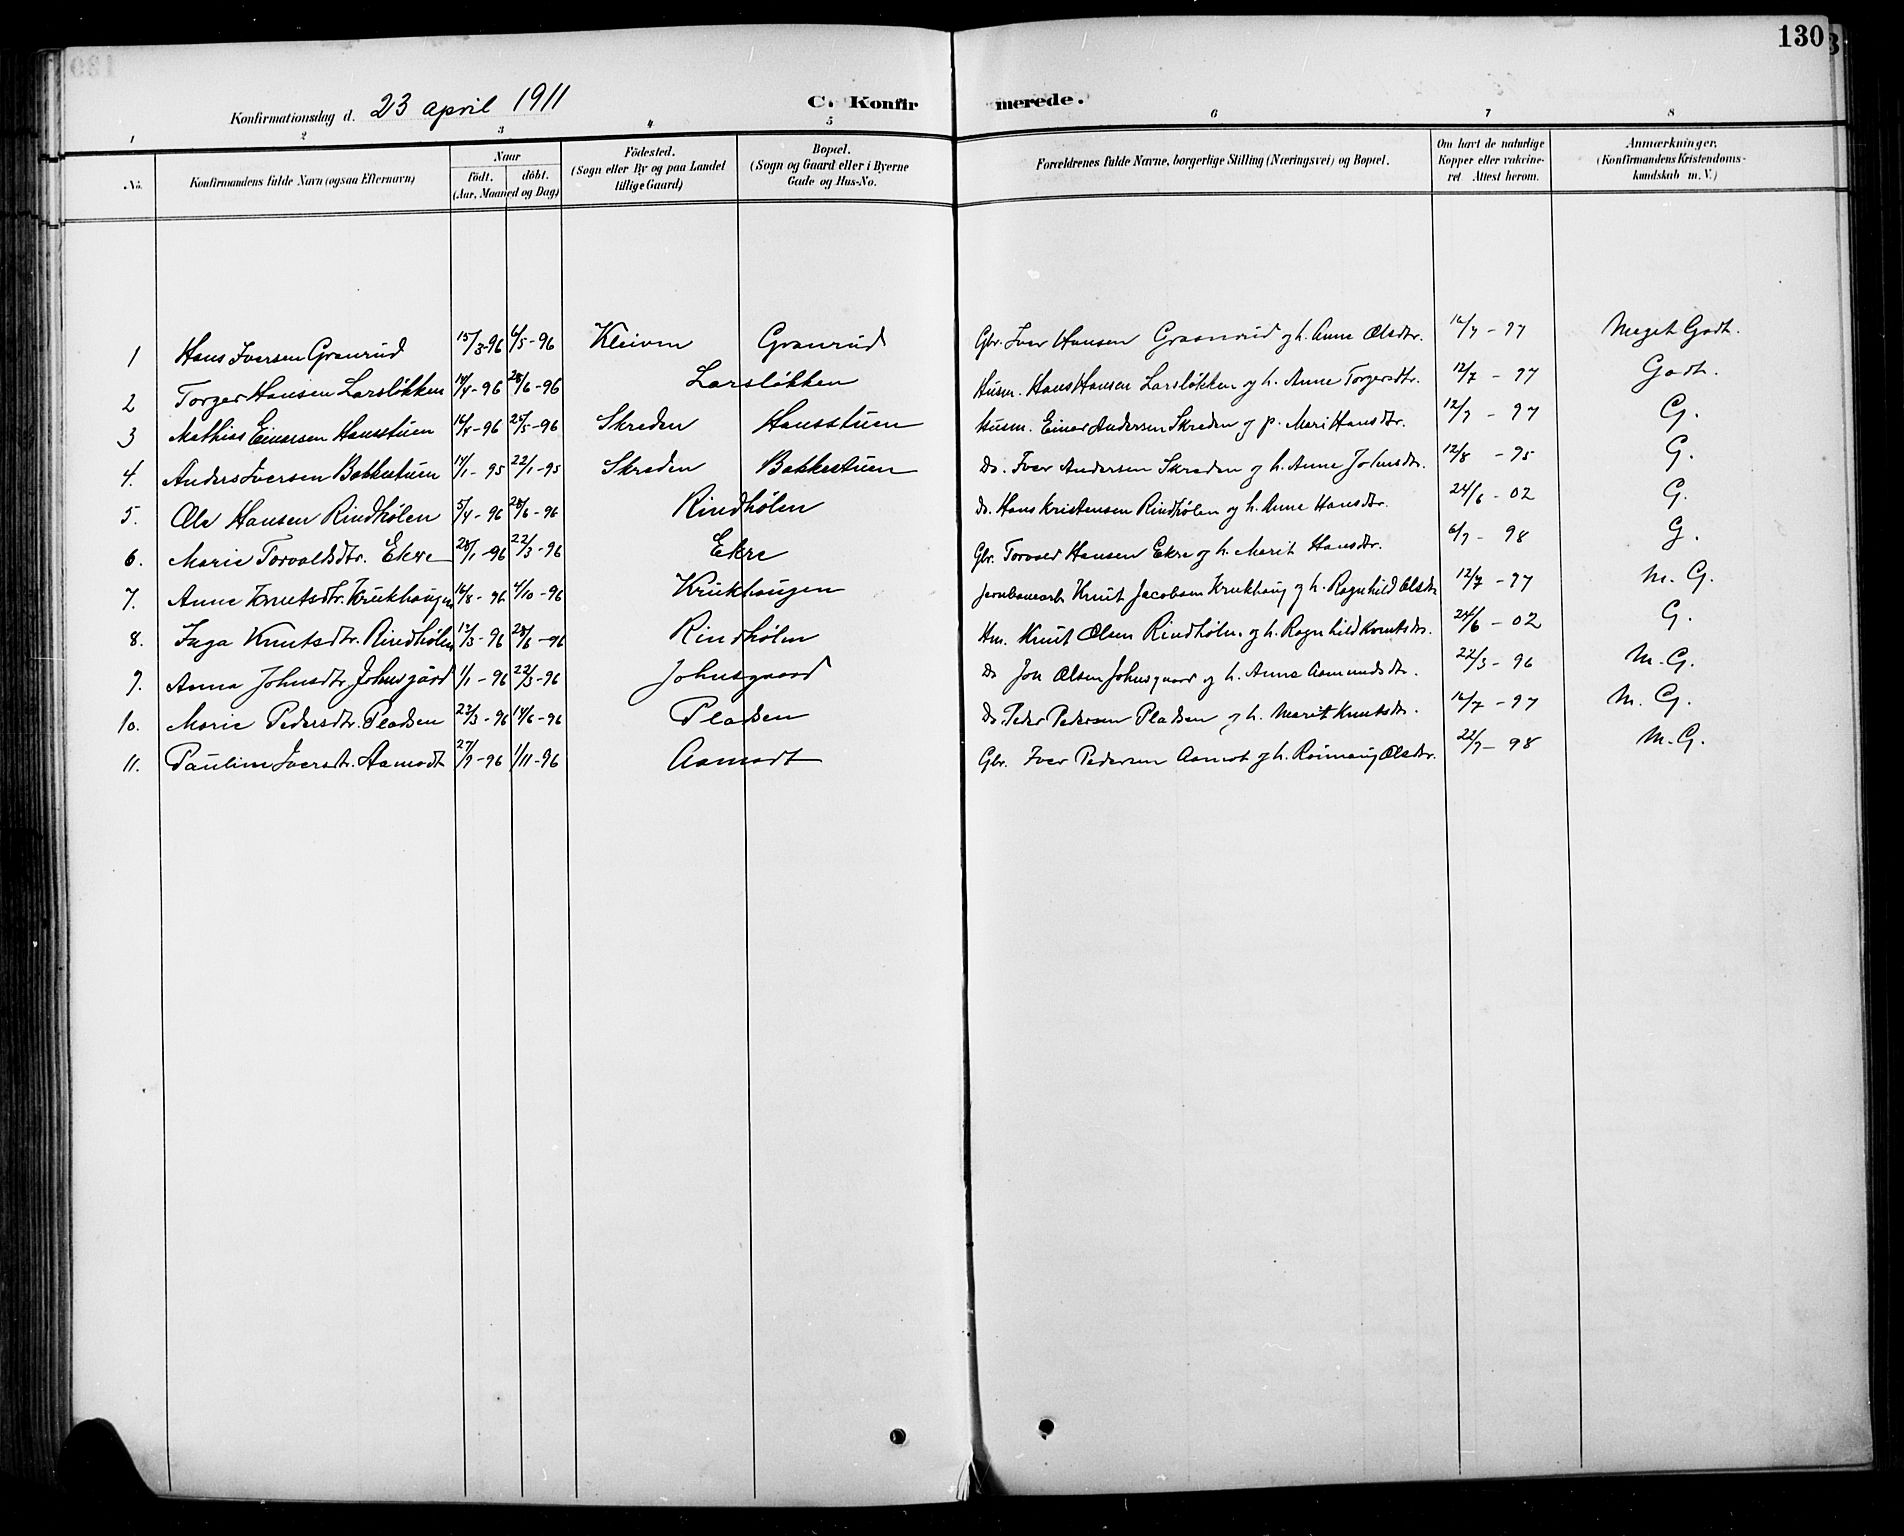 130
Konfirmationsdag d. 23 april 1911 C. Konfirmerede.
1 2 3 4 5 6 7 8
No. Konfirmandens fulde Navn (ogsaa Efternavn) Naar født. døbt. (Aar, Maaned og Dag) Fødested. (Sogn eller By og paa Landet tillige Gaard) Bopæl. (Sogn og Gaard eller i Byerne Gade og Hus-No. Forældrenes fulde Navne, borgerlige Stilling (Næringsvei) og Bopæl. Om havt de naturlige Kopper eller vakcineret. Attest herom. Anmærkninger, (Konfirmandens Kristendomskundskab m. V.)
1 Hans Iversen Granrud 15/3-96 6/5-96 Kleiven Granrud Gbr. Iver Hansen Graanrud og h. Anne Olsdtr. 16/7-97 Meget Godt.
2 Torger Hansen Larsløkken 14/4-96 28/6-96 Larsløkken Husm. Hans Hansen Larsløkken og h. Anne Torgersdtr. 12/7-97 Godt.
3 Mathias Einarsen Hansstuen 16/4-96 25/5-96 Skreden Hansstuen Husm. Einar Andersen Skreden og p. Mari Hansdtr. 12/7-97 G.
4. Anders Iversen Bakkestuen 14/1-95 22/1-95 Skreden Bakkestuen Do. Iver Andersen Skreden og h. Anne Johnsdtr. 12/8-95 G.
5. Ole Hansen Rindhølen 5/4-96 28/6-96 Rindhølen Do. Hans Kristensen Rindhølen og h. Anne Hansdtr. 24/6-02 G.
6. Marie Torvaldsdtr. Ekre 28/1-96 22/3-96 Ekre Gbr. Torvald Hansen Ekre og h. Marit Hansdtr. 6/7-98 G.
7. Anne Knutsdtr. Krukhaugen 16/8-96 4/10-96 Krukhaugen Jernbanearb Knut Jacobsen Krukhaug og h. Ragnhild Olsdtr 12/7-97 M. G.
8. Inga Knutsdtr. Rindhølen 12/3-96 28/6-96 Rindhølen Hm. Knut Olsen Rindhølen og h. Ragnhild Knutsdtr. 24/6-02 G.
9. Anna Johnsdtr. Johnsgård 1/1-96 22/3-96 Johnsgaard Do Jon Olsen Johnsgaard og h. Anne Aamundsdtr. 22/3-96 M. G.
10. Marie Pedersdtr. Pladsen 23/3-96 14/6-96 Pladsen Do. Peder Pedersen Pladsen og h. Marit Knutsdtr. 16/7-97 M. G.
11. Pauline Iversdtr. Aamodt 27/9-96 1/11-96 Aamodt Gbr. Iver Pedersen Aamot og h. Rønnaug Olsdtr. 22/7-98 M. G.